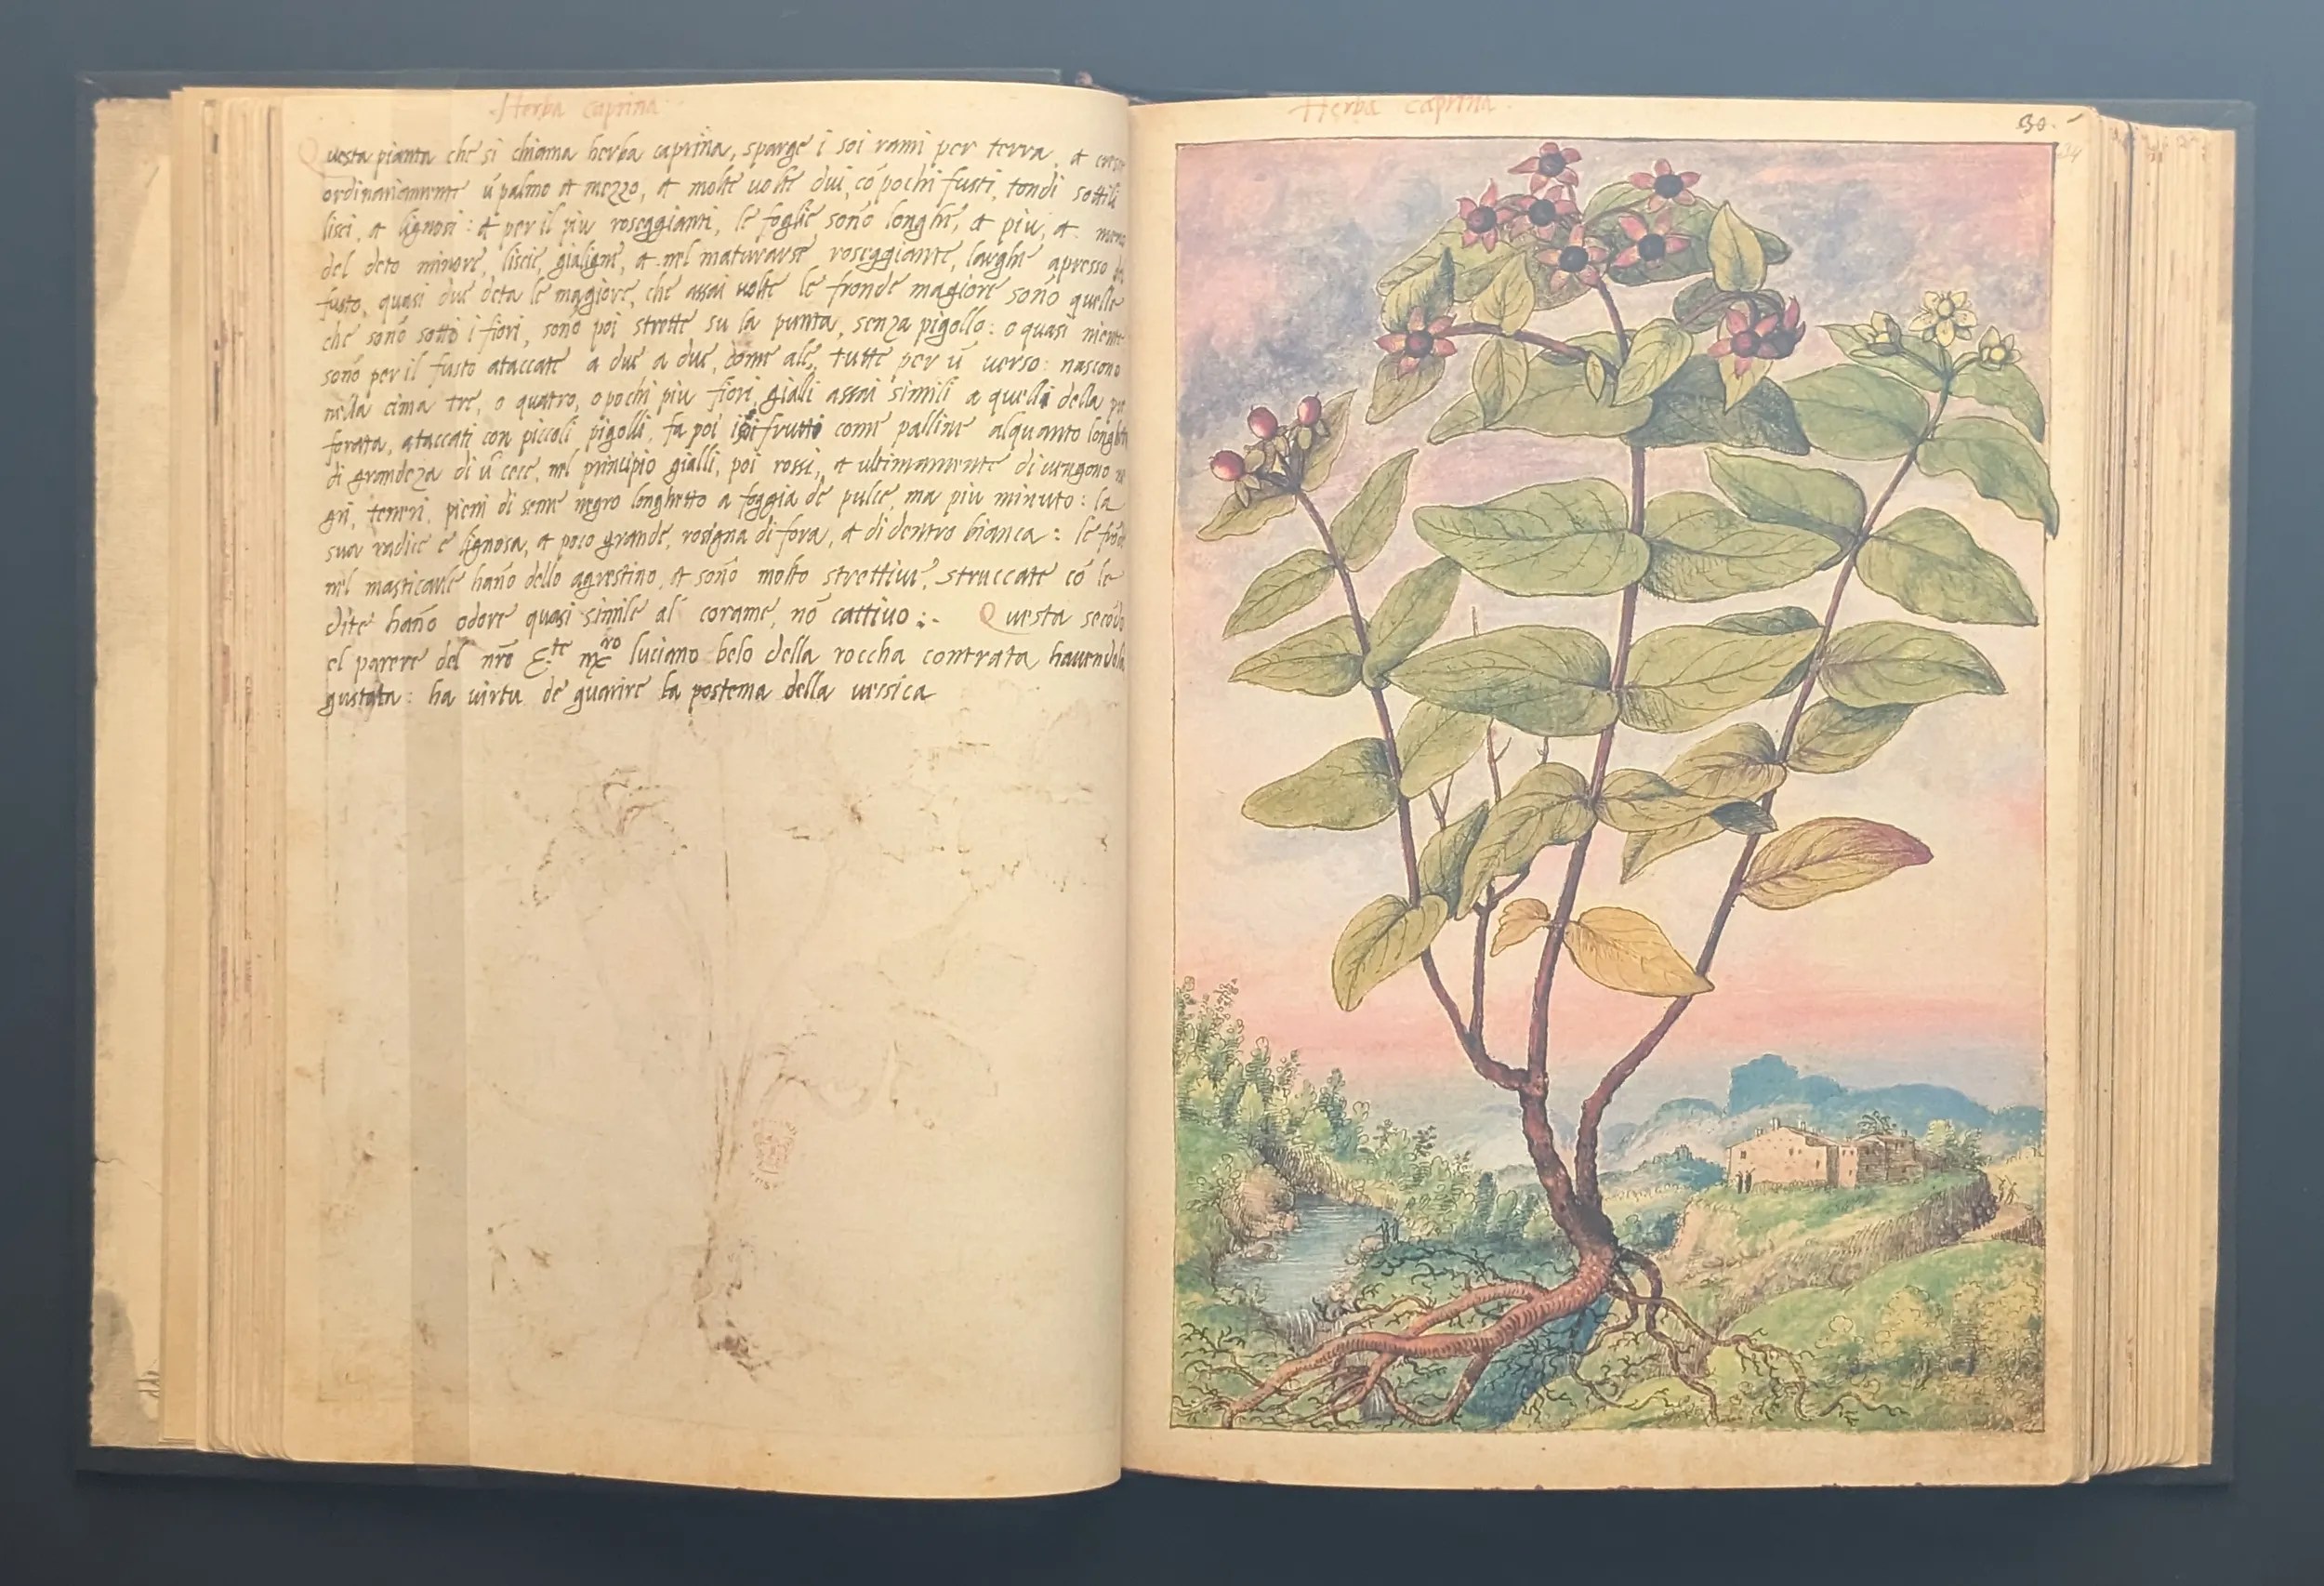 Herba caprina
Questa pianta che si chiama herba caprina, sparge i soi rami per terra, et
ordinariamente ũ palmo et mezzo, et molte uolte dui, cõ pochi fusti, tondi sottili
lisci, et lignosi: et per il piu roseggianti, le foglie sono longhe, et piu, et
del deto minore, liscie, gialigne, et nel maturarse roseggiante, larghe apresso
fusto, quasi due deta le magiore, che assai uolte le fronde magiore sono quelle
che sono sotto i fiori, sono poi strette su la punta, senza pigollo: o quasi niente
sono per il fusto ataccate a due a due, come ale, tutte per ũ uerso: nascono
nella cima tre, o quatro, o pochi piu fiori, gialli assai simili a quelli della
forata, ataccati con piccoli pigolli, fa poi i frutti come palline alquanto
di grandeza di ũ cece, nel principio gialli, poi rossi, et ultimamente diuengono
gri, teneri, pieni di seme negro longhetto a foggia de pulce, ma piu minuto: la
sua radice e lignosa, et poco grande, rosegna di fora, et di dentro bianca: le
nel masticarle hano dello agrestino, et sono molto strettiue, struccate cõ le
dite hano odore quasi simile al corame, nõ cattiuo:- Questa
el parere del nrõ luciano belo della roccha contrata hauendola
gustata: ha uirtu de guarire la postema della uessica
Herba caprina.
30.
34